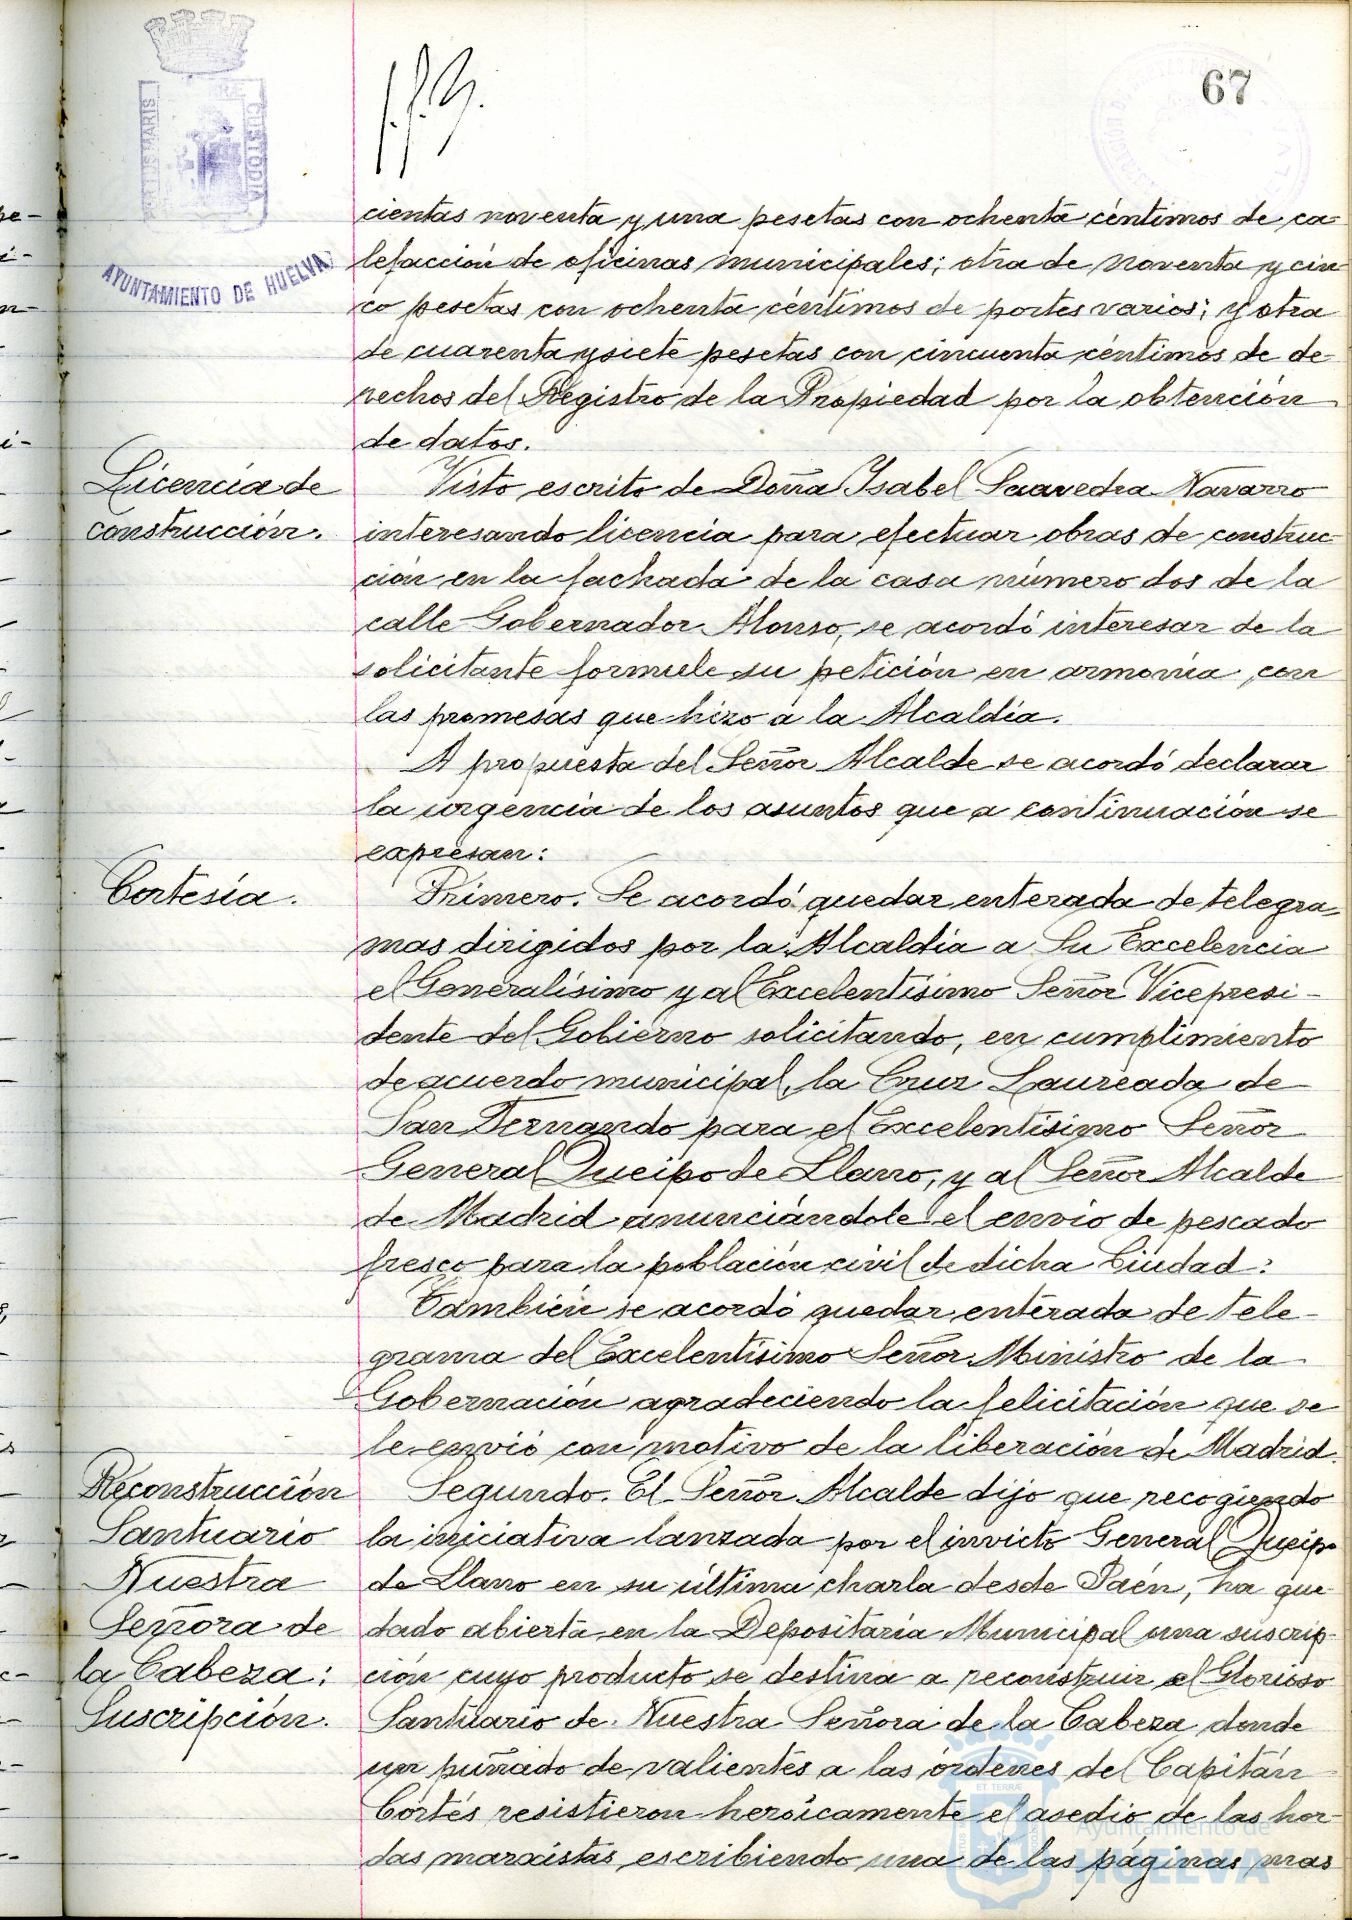 67
PORTUS MARIS
CUSTODIA
AYUNTAMIENTO DE HUELVA
cientas noventa y una pesetas con ochenta céntimos de ca-
lefacción de oficinas municipales; otra de noventa y cin-
co pesetas con ochenta céntimos de portes varios; y otra
de cuarenta y siete pesetas con cincuenta céntimos de de-
rechos del Registro de la Propiedad por la obtención
de datos.
Licencia de
construcción.
Visto escrito de Doña Ysabel Saavedra Navarro
interesando licencia para efectuar obras de construc-
ción en la fachada de la casa número dos de la
calle Gobernador Alonso, se acordó interesar de la
solicitante formule su petición en armonía con
las promesas que hizo a la Alcaldía.
A propuesta del Señor Alcalde se acordó declarar
la urgencia de los asuntos que a continuación se
expresan:
Cortesía.
Primero. Se acordó quedar enterada de telegra-
mas dirigidos por la Alcaldía a Su Excelencia
el Generalísimo y al Excelentísimo Señor Vicepresi-
dente del Gobierno solicitando, en cumplimiento
de acuerdo municipal, la Cruz Laureada de
San Fernando para el Excelentísimo Señor
General Queipo de Llano, y al Señor Alcalde
de Madrid anunciándole el envío de pescado
fresco para la población civil de dicha Ciudad:
También se acordó quedar enterada de tele-
grama del Excelentísimo Señor Ministro de la
Gobernación agradeciendo la felicitación que se
le envió con motivo de la liberación de Madrid.
Reconstrucción
Santuario
Nuestra
Señora de
la Cabeza:
Suscripción.
Segundo. El Señor Alcalde dijo que recogiendo
la iniciativa lanzada por el invicto General Queipo
de Llano en su última charla desde Jaén, ha que-
dado abierta en la Depositaría Municipal una suscrip-
ción cuyo producto se destina a reconstruir el Glorioso
Santuario de Nuestra Señora de la Cabeza donde
un puñado de valientes a las órdenes del Capitán
Cortés resistieron heróicamente el asedio de las hor-
das marxistas, escribiendo una de las páginas mas
Ayuntamiento de
HUELVA